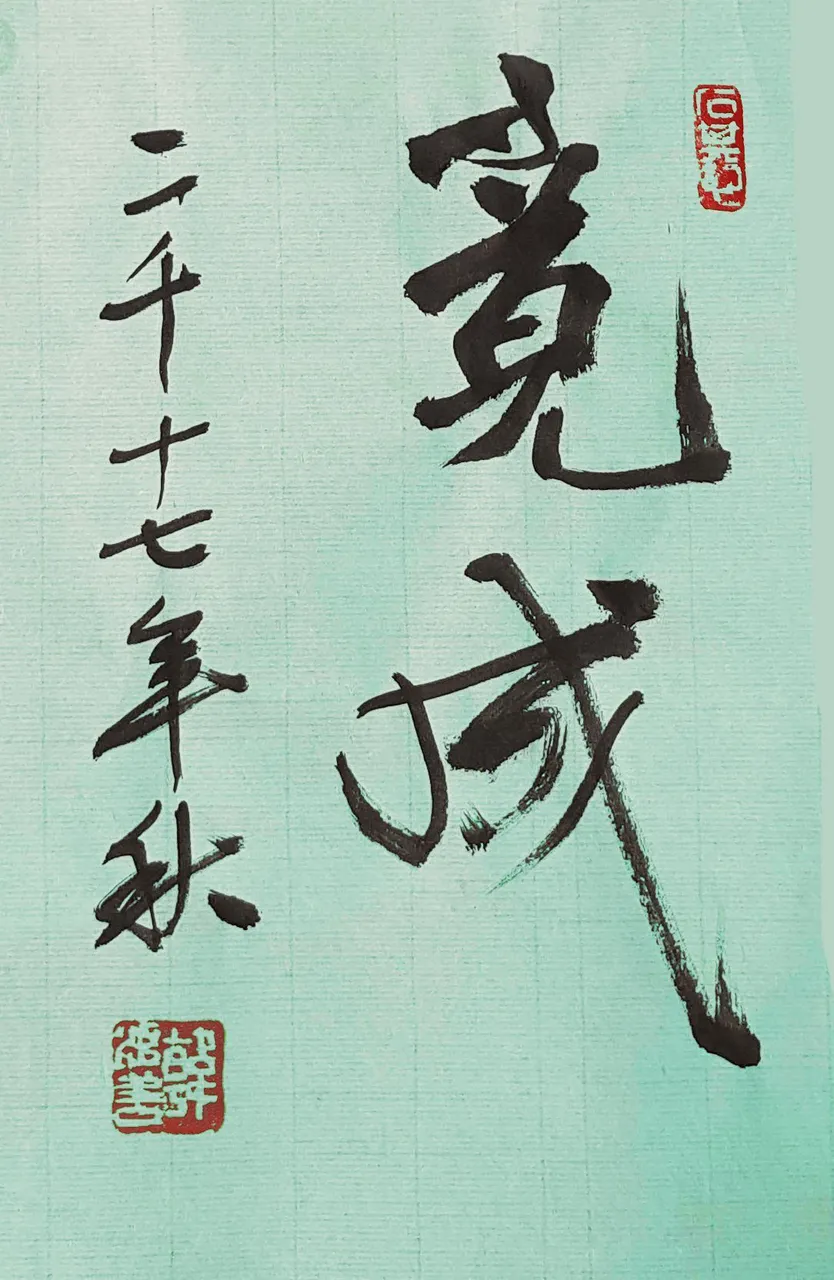 竟成
二千十七年秋